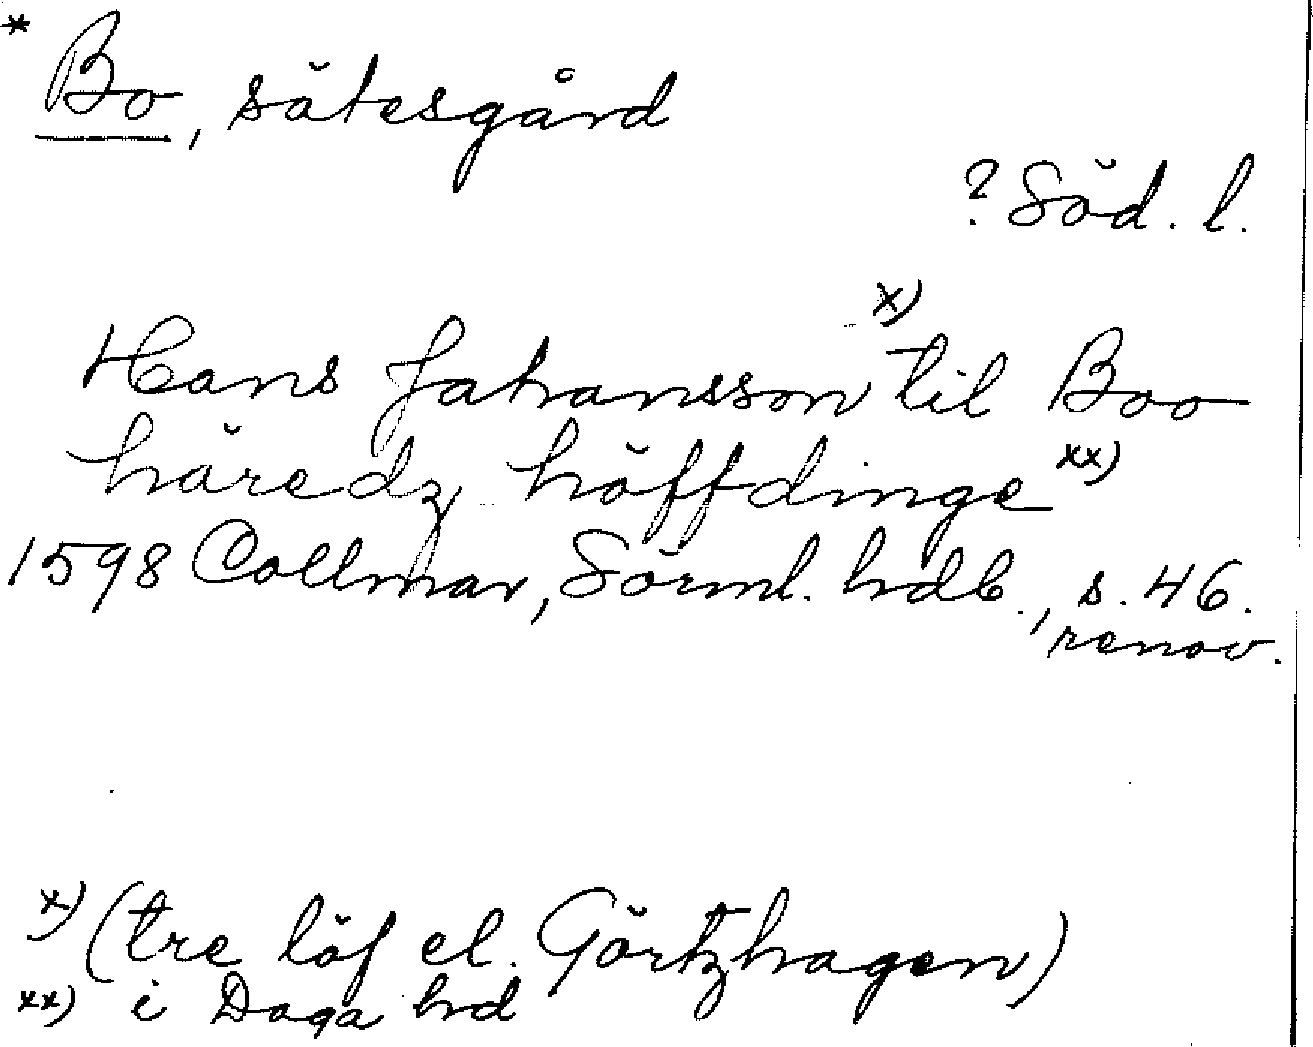 * Bo, sätesgård
? Söd. l.
Hans Johansson x) til Boo
häredz höffdinge xx)
1598 Collmar, Sörml. hdb., s. 46.
renov.
x) (tre löf el. Görtzhagen)
xx) i Daga hd